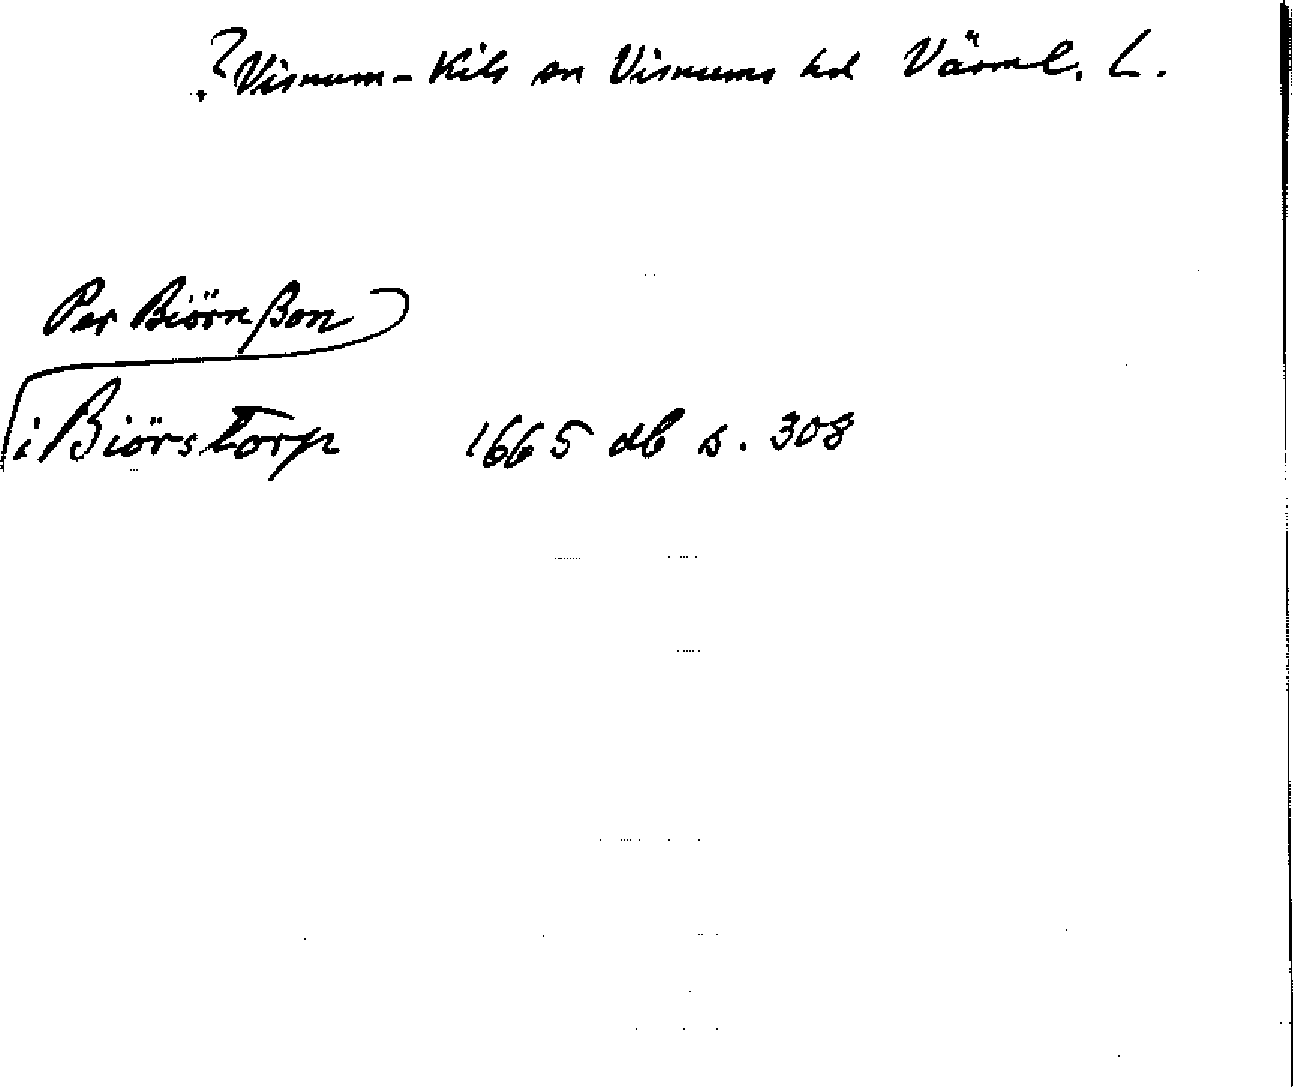 ? Visnum-Kils sn Visnums hd Värml. L.
Per Biörnßon
i Biörstorp 1665 db s. 308